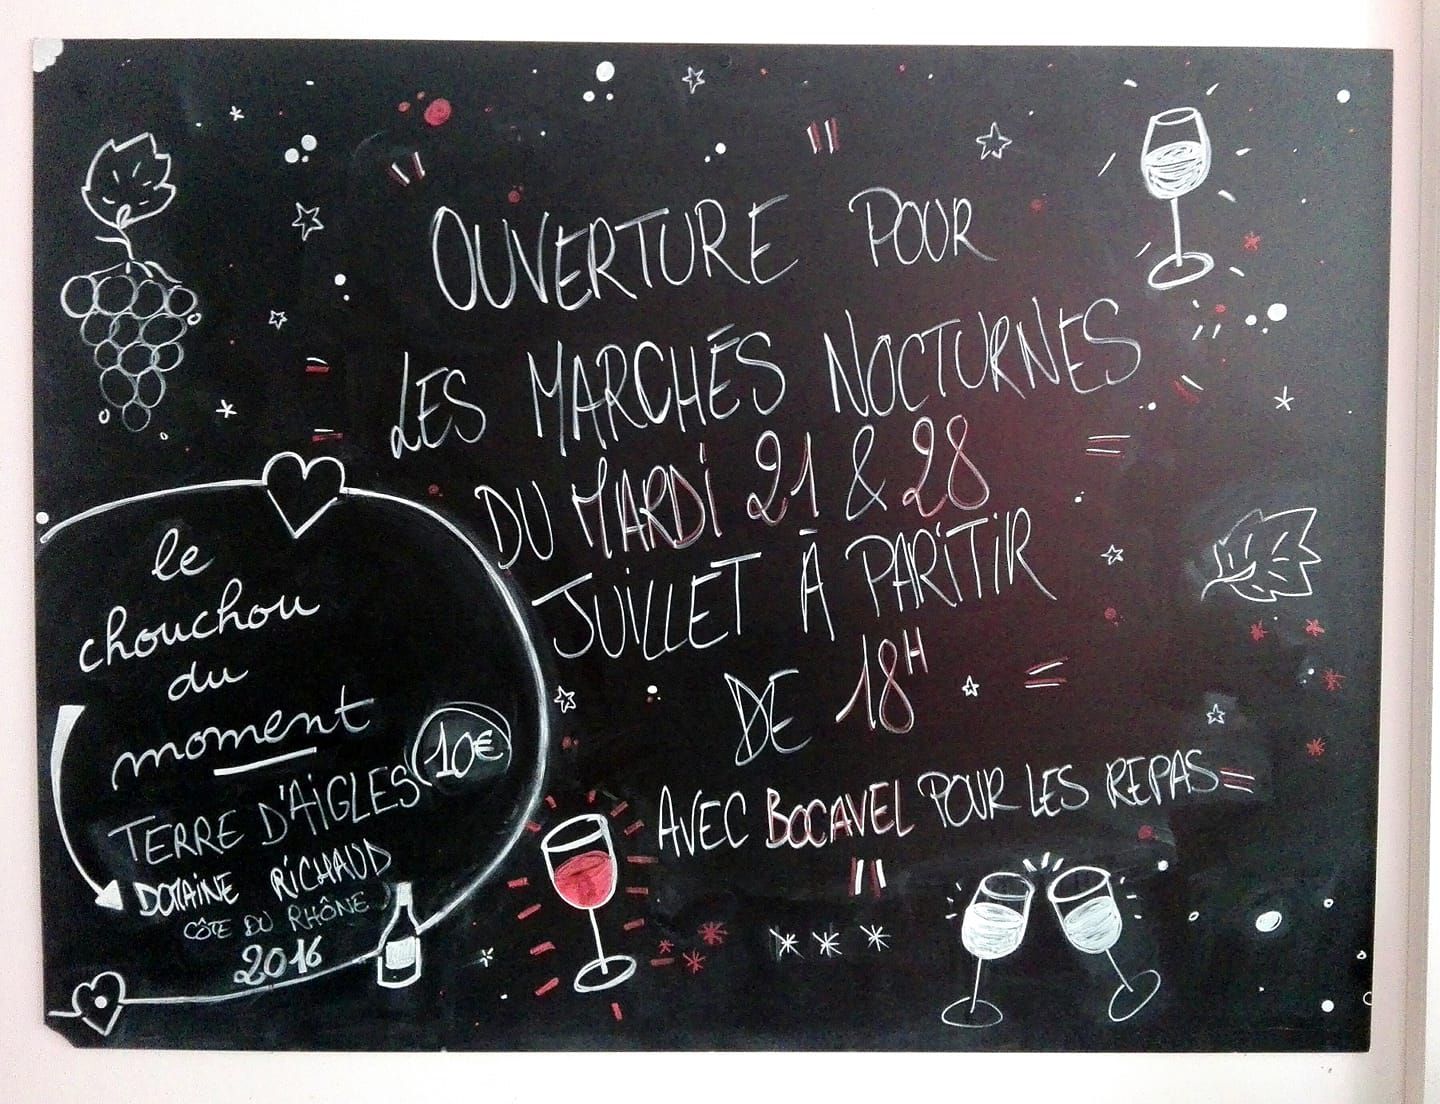 OUVERTURE POUR
LES MARCHÉS NOCTURNES
DU MARDI 21 & 28
JUILLET À PARITIR
DE 18H
AVEC BOCAVEL POUR LES REPAS
le
chouchou
du
moment
10€
TERRE D'AIGLES
DOMAINE RICHAUD
CÔTE DU RHÔNE
2016